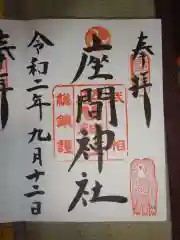 奉拝
座間神社
令和二年九月十二日
奉拝